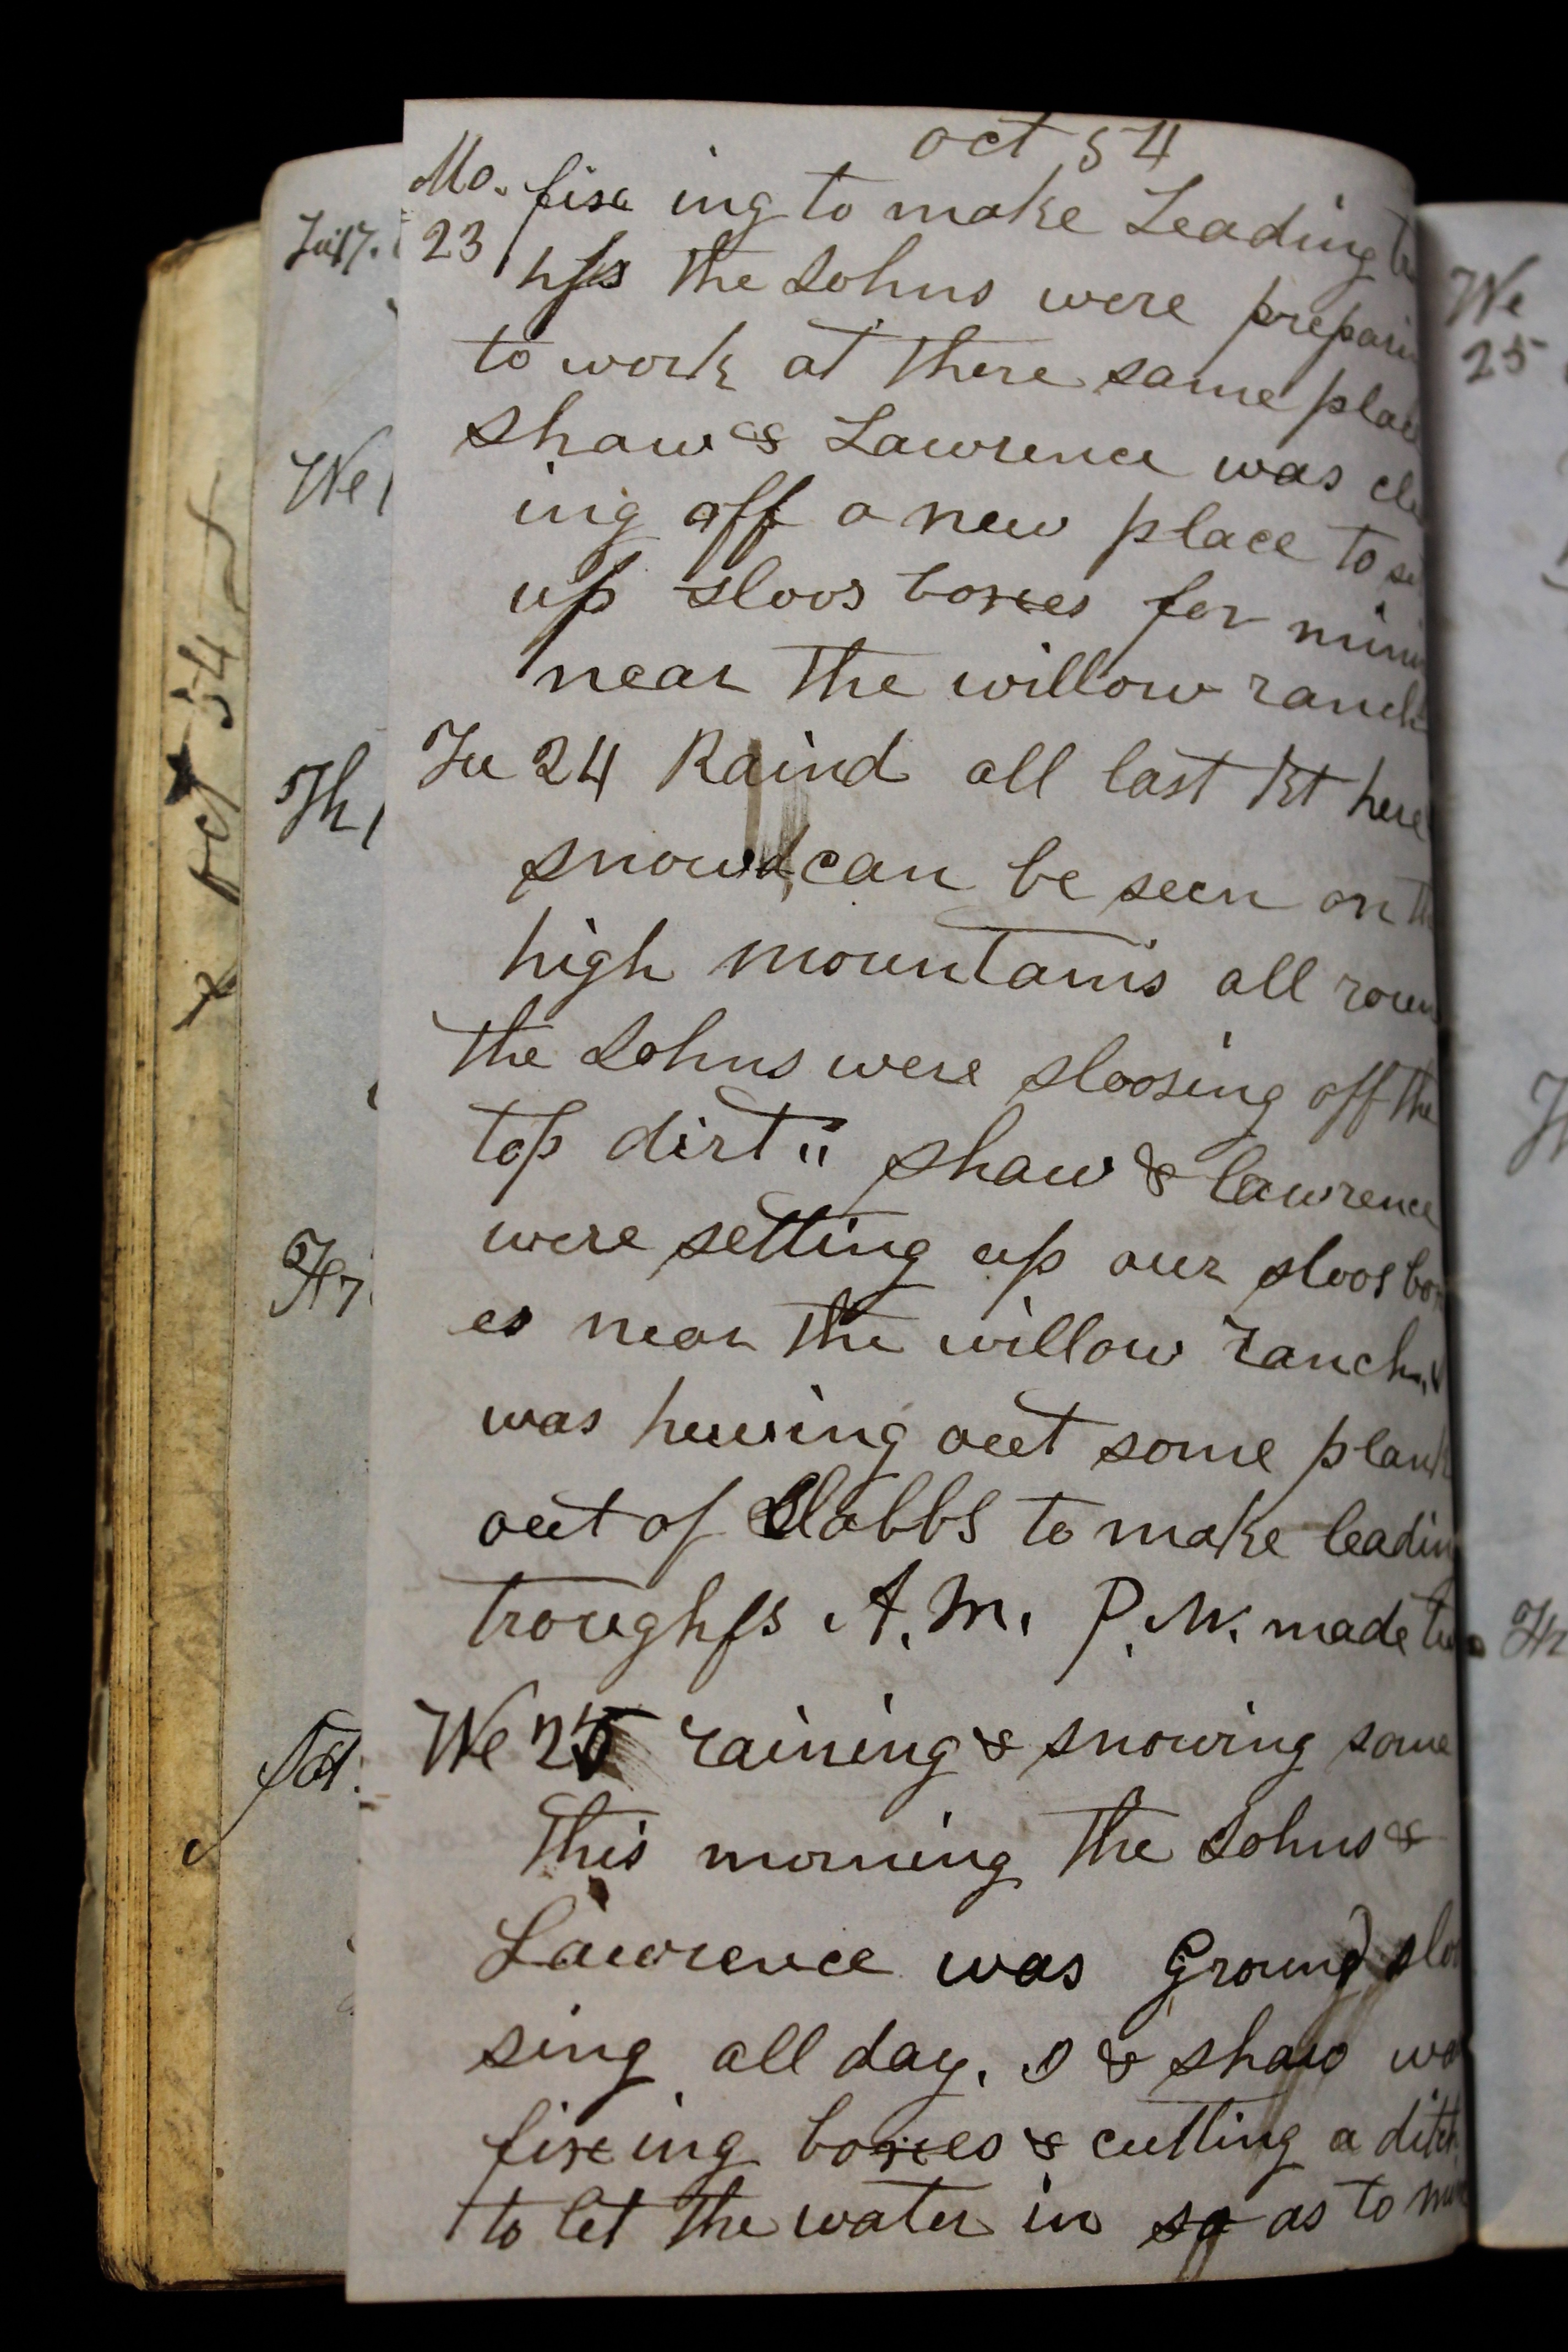 oct 54
Mo. fixing to make Leading
23 hfs the Johns were prepari
to work at there same plac
shaw & Lawrence was cle
ing off a new place to se
up sloos boxes for minin
near the willow ranch
Tu 24 Raind all last Nt here
snowd can be seen on th
high mountains all roun
the Johns were sloosing off the
top dirt " shaw & lawrence
were setting up our sloos box
es near the willow ranch,
was hewing out some plank
out of Slabbs to make leadin
troughfs A.M. P.M. made tw
We 25 raining & snowing some
this morning the Johns &
Lawrence was Ground sloo
sing all day. I & shaw wa
fixing boxes & cutting a ditch
to let the water in so as to
Tu 17.
We 1
Th 1
Fr
Sat.
oct 54
We
25
Th